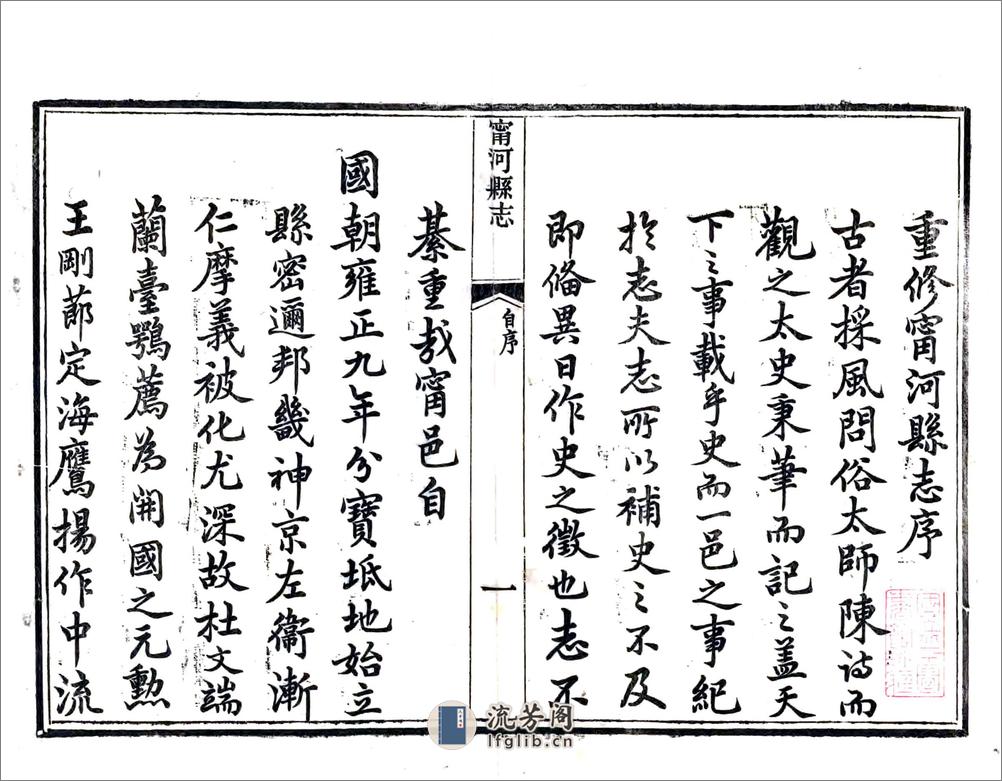 重修甯河縣志序
古者採風問俗太師陳詩而
觀之太史秉筆而記之蓋天
下之事載乎史而一邑之事紀
於志夫志所以補史之不及
即俻異日作史之徵也志不
甯河縣志
自序
一
綦重哉甯邑自
國朝雍正九年分寶坻地始立
縣密邇邦畿神京左衞漸
仁摩義被化尤深故杜文端
蘭臺鶚薦為開國之元勲
王剛莭定海鷹揚作中流
流芳阁
lfglib.cn